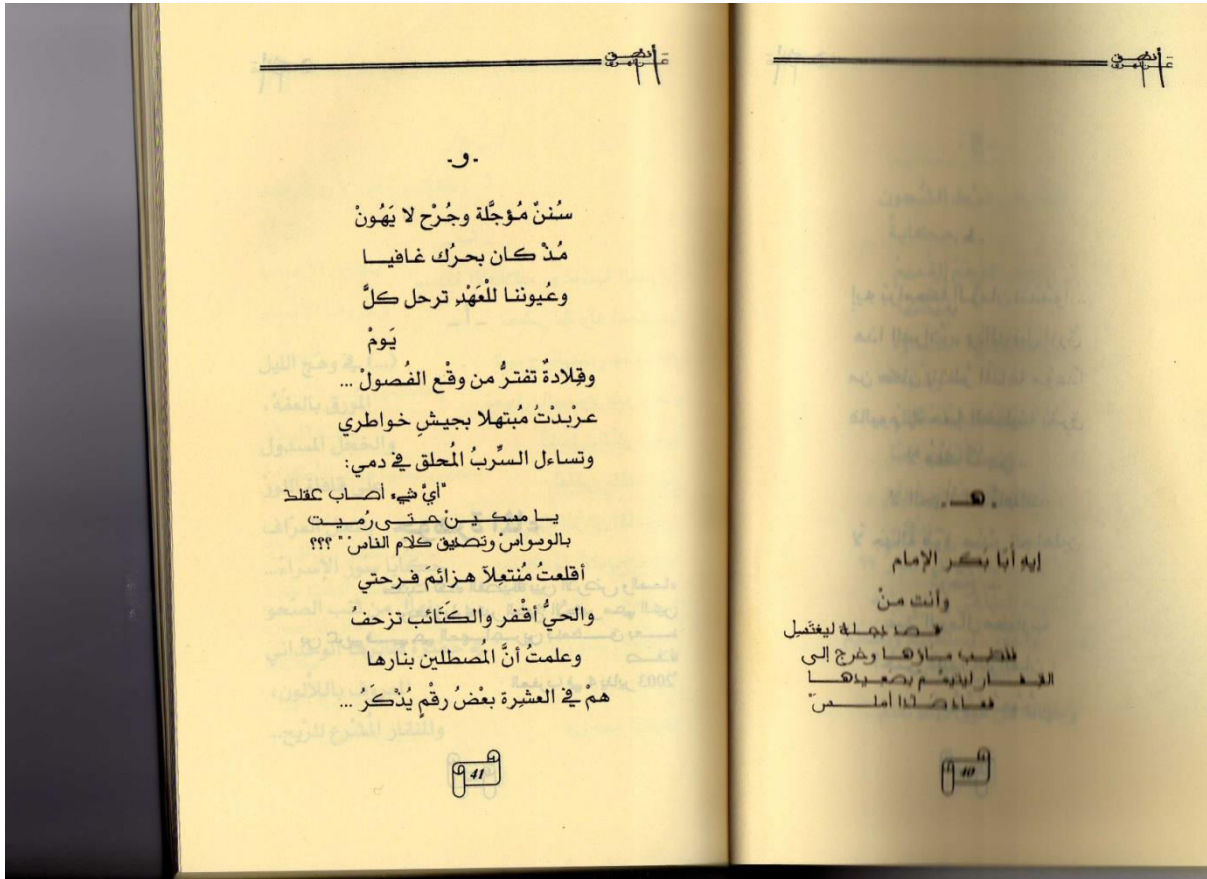 أنطق
- هـ -
إيهِ أبَا بَكر الإمام
وأنت منْ
قصد دجلة ليغتسل
فنضب ماؤها وخرج إلى
القفار ليتيمّم بصعيدها
فعاد صَلْدًا أملسَ"
40
أنطق
-و-
سُننٌ مُؤجَّلة وجُرْح لا يَهُونْ
مُذْ كان بحرُك غافيا
وعُيوننا للْعَهْدِ ترحل كلَّ
يَومْ
وقِلادةٌ تفترُّ من وقْع الفُصولْ ...
عربْدْتُ مُبتهلا بجيشِ خواطري
وتساءل السِّربُ المُحلق في دمي:
"أيّ شيء أصاب عقلك
يا مسكينْ حتى رُميت
بالوسواسْ وتصديق كلام الناسْ" ؟؟؟
أقلعتُ مُنتعِلاً هزائم فرحتي
والحيُّ أقْفر والكَتَائب تزحفُ
وعلمتُ أنَّ المُصطلين بنارها
همْ في العشيرة بعْضُ رقْمٍ يُذْكَرُ ...
41